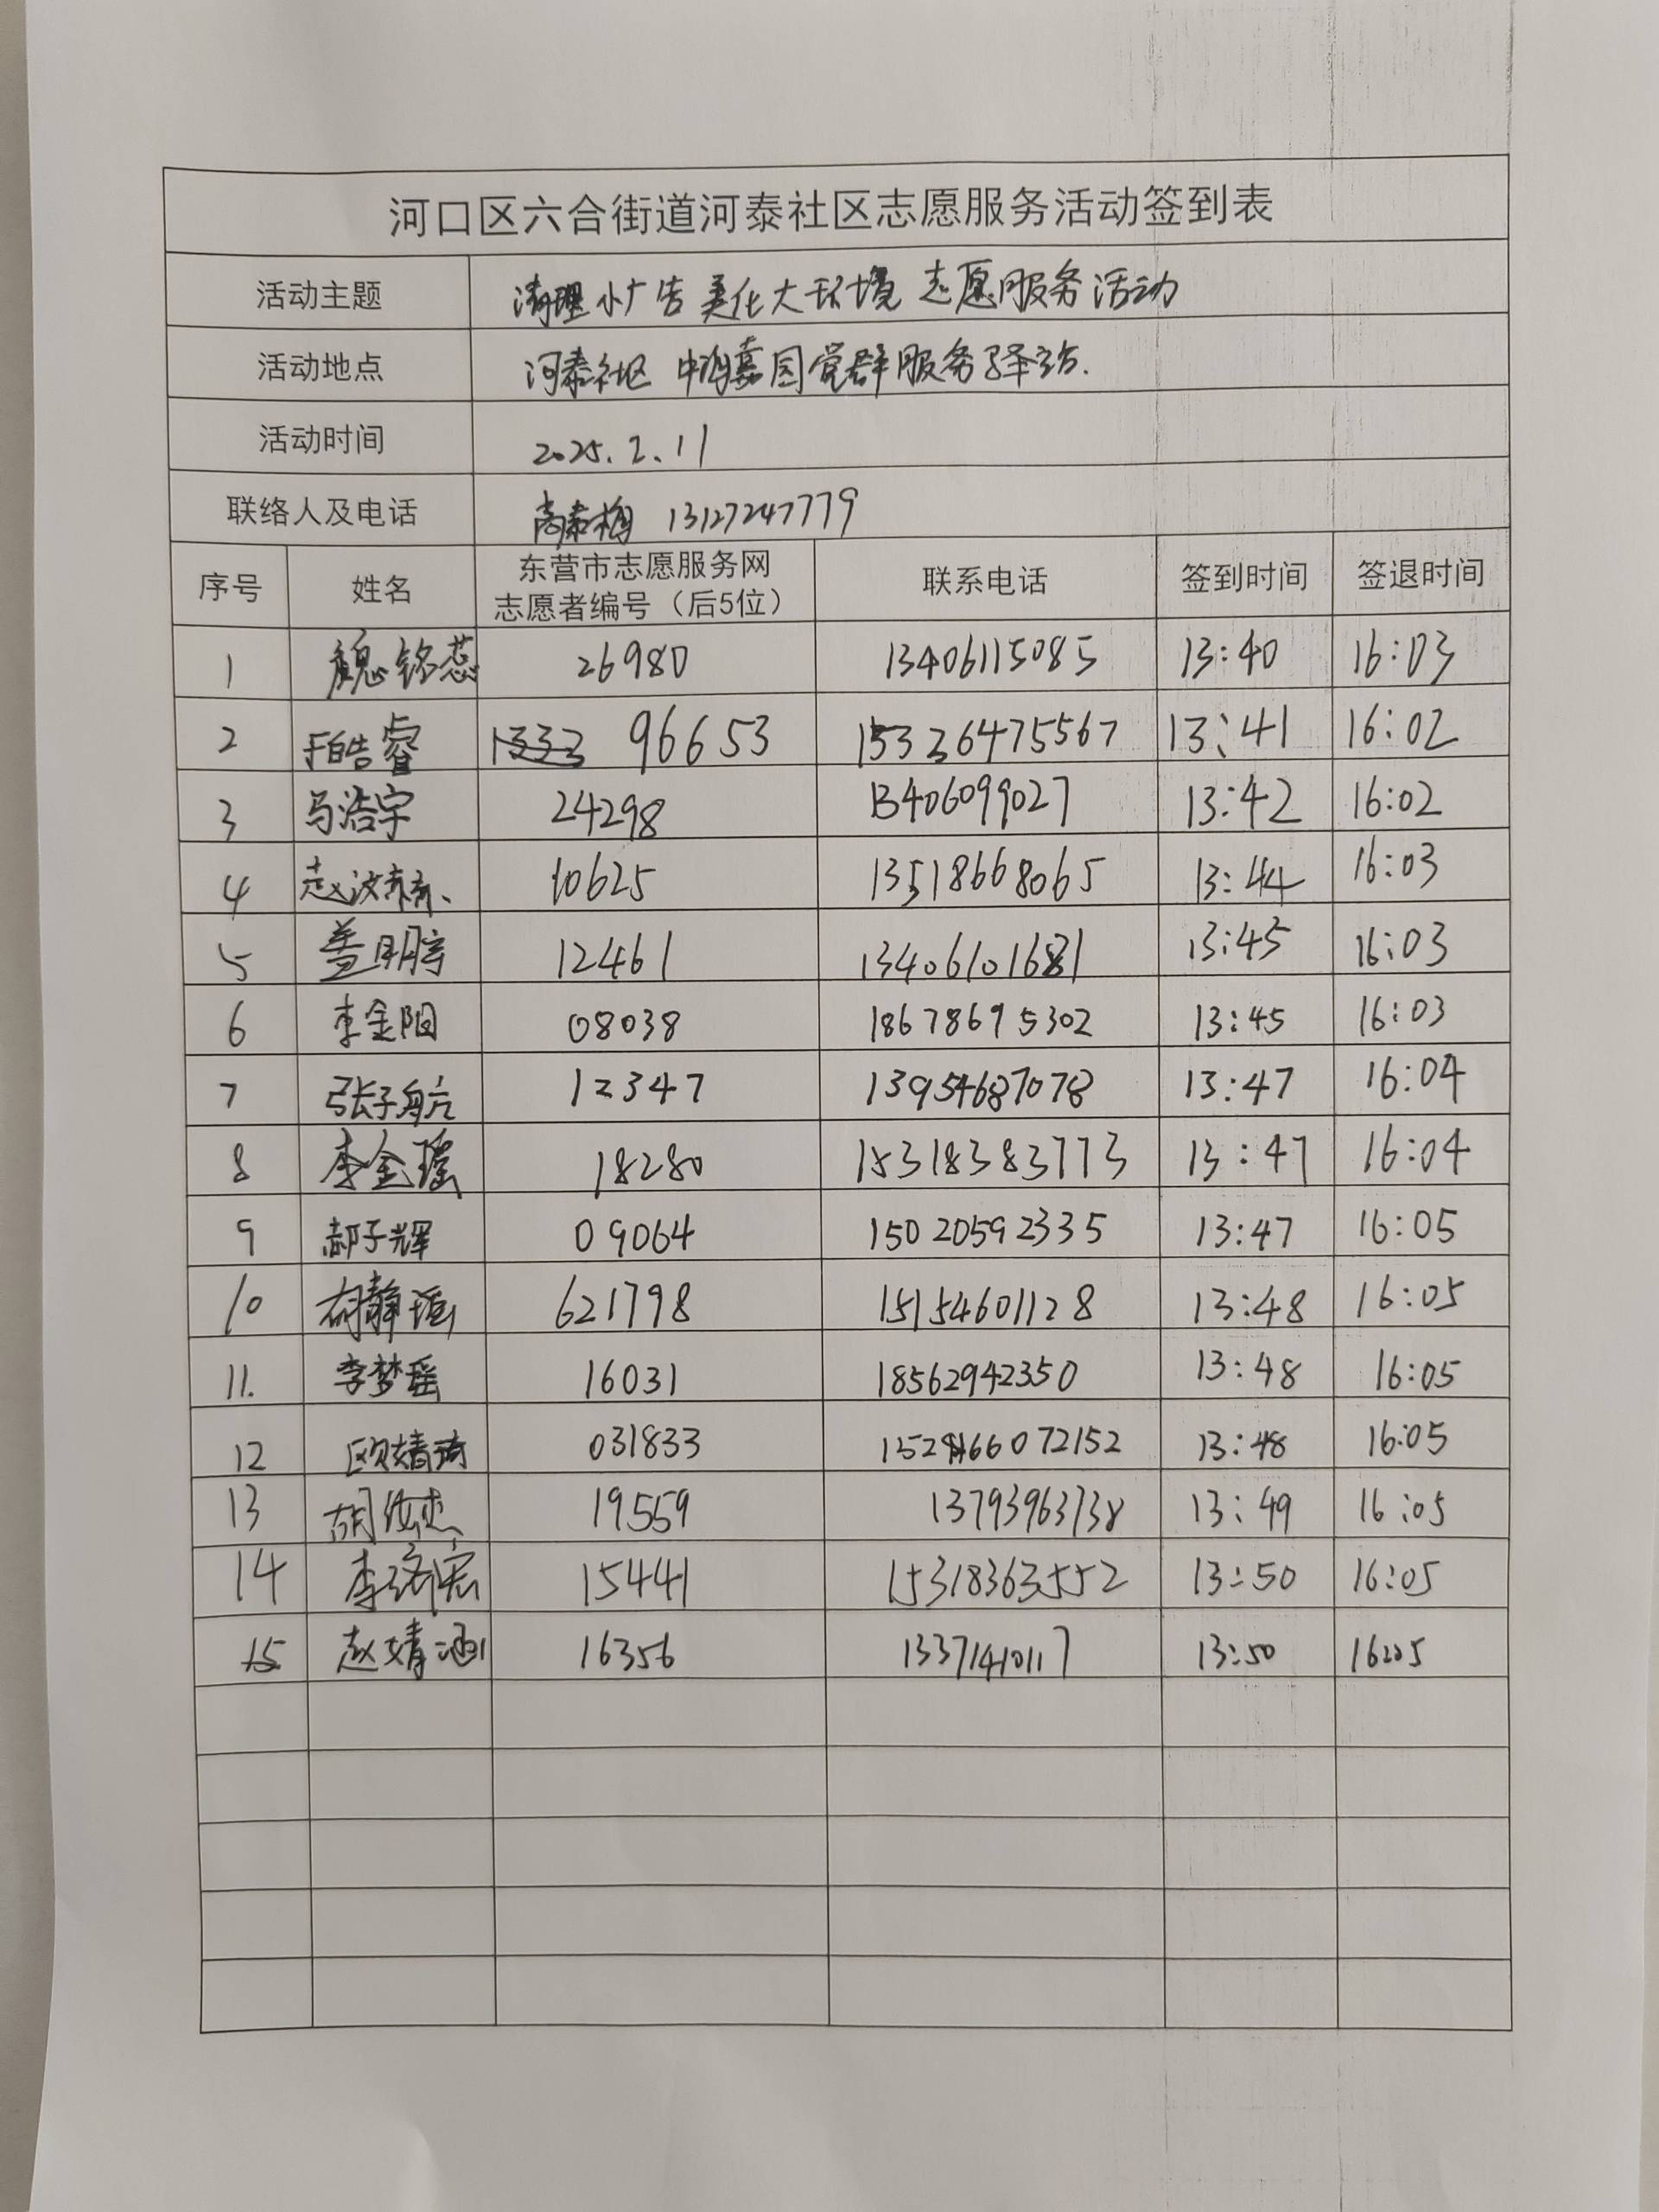 河口区六合街道河泰社区志愿服务活动签到表
活动主题 清理小广告 美化大环境 志愿服务活动
活动地点 河泰社区 中鸿嘉园党群服务驿站.
活动时间 2025.2.11
联络人及电话 13127247779
序号 姓名 东营市志愿服务网 志愿者编号（后5位） 联系电话 签到时间 签退时间
1 魏铭蕊 26980 13406115085 13:40 16:03
2 于皓睿 96653 15326475567 13:41 16:02
3 马浩宇 24298 13406099027 13:42 16:02
4 10625 13518668065 13:44 16:03
5 盖明 12461 13406101681 13:45 16:03
6 李金阳 08038 18678695302 13:45 16:03
7 张子航 12347 13954687078 13:47 16:04
8 李金瑶 18280 15318383773 13:47 16:04
9 郝子辉 09064 15020592335 13:47 16:05
10 胡静瑶 621798 15154601128 13:48 16:05
11. 李梦瑶 16031 18562942350 13:48 16:05
12 欧婧琦 031833 13:48 16:05
13 胡 19559 13793963738 13:49 16:05
14 李 宸 15441 15318363552 13:50 16:05
15 赵婧涵 16356 13371410117 13:50 16:05